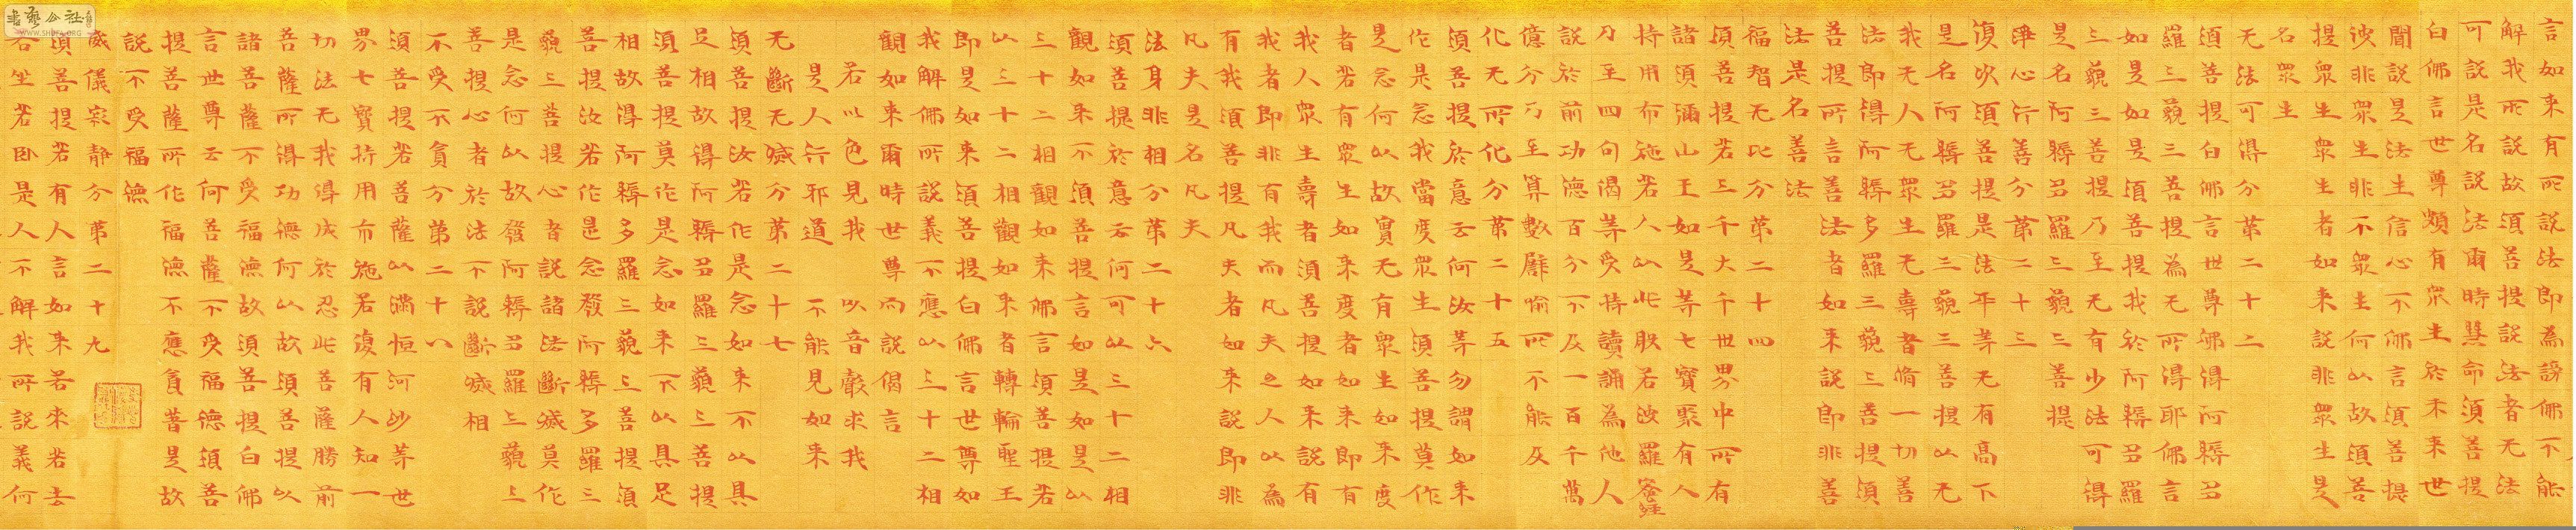 言如来有所說法即為謗佛不能
解我所說故須菩提說法者无法
可說是名說法爾時慧命須菩提
白佛言世尊頗有眾生於未来世
聞說是法生信心不佛言須菩提
彼非眾生非不眾生何以故須菩
提眾生眾生者如来說非眾生是
名眾生
无法可得分第二十二
須菩提白佛言世尊佛得阿耨多
羅三藐三菩提為无所得耶佛言
如是如是須菩提我於阿耨多羅
三藐三菩提乃至无有少法可得
是名阿耨多羅三藐三菩提
淨心行善分第二十三
復次須菩提是法平等无有高下
是名阿耨多羅三藐三菩提以无
我无人无眾生无壽者脩一切善
法即得阿耨多羅三藐三菩提須
菩提所言善法者如来說即非善
法是名善法
福智无比分第二十四
須菩提若三千大千世界中所有
諸須彌山王如是等七寶聚有人
持用布施若人以此般若波羅蜜經
乃至四句偈等受持讀誦為他人
說於前功德百分不及一百千萬
億分乃至算數譬喻所不能及
化无所化分第二十五
須菩提於意云何汝等勿謂如来
作是念我當度眾生須菩提莫作
是念何以故實无有眾生如来度
者若有眾生如来度者如来即有
我人眾生壽者須菩提如来說有
我者即非有我而凡夫之人以為
有我須菩提凡夫者如来說即非
凡夫是名凡夫
法身非相分第二十六
須菩提於意云何可以三十二相
觀如来不須菩提言如是如是以
三十二相觀如来佛言須菩提若
以三十二相觀如来者轉輪聖王
即是如来須菩提白佛言世尊如
我解佛所說義不應以三十二相
觀如来爾時世尊而說偈言
若以色見我 以音聲求我
是人行邪道 不能見如来
无斷无滅分第二十七
須菩提汝若作是念如来不以具
足相故得阿耨多羅三藐三菩提
須菩提莫作是念如来不以具足
相故得阿耨多羅三藐三菩提須
菩提汝若作是念發阿耨多羅三
藐三菩提心者說諸法斷滅莫作
是念何以故發阿耨多羅三藐三
菩提心者於法不說斷滅相
不受不貪分第二十八
須菩提若菩薩以滿恒河沙等世
界七寶持用布施若復有人知一
切法无我得成於忍此菩薩勝前
菩薩所得功德何以故須菩提以
諸菩薩不受福德故須菩提白佛
言世尊云何菩薩不受福德須菩
提菩薩所作福德不應貪著是故
說不受福德
威儀寂靜分第二十九
須菩提若有人言如来若来若去
若坐若卧是人不解我所說義何
書藝公社
WWW.SHUFA.ORG